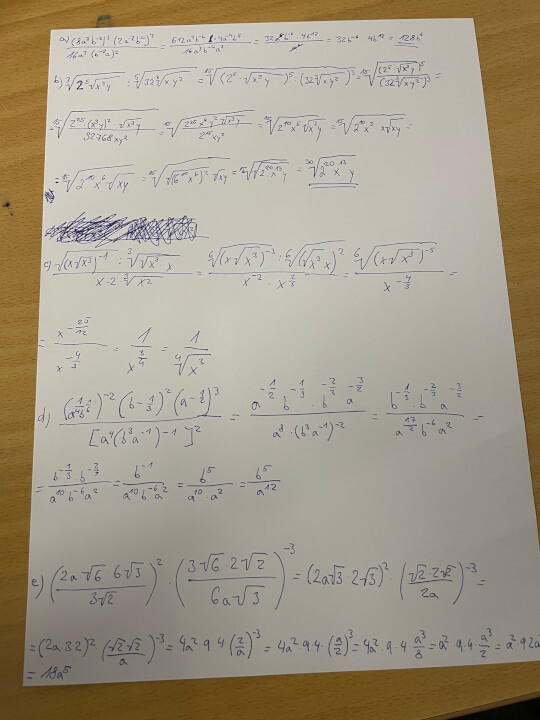 a) (8a³b⁻²)³ (2a⁻²b⁻⁴)² / 16a³ (b⁻²a)² = 512a³b⁻⁶ · 4a⁻⁴b⁸ / 16a³b⁻⁴a² = = 32b⁻⁶ 4b¹² = 128b⁶
b) ³√2 ⁵√x³y : ⁵√32³√xy² = ¹⁵√(2⁵ · √x³y)⁵ : (32³√xy²)³ = ¹⁵√(2⁵ · √x³y)⁵ / (32³√xy²)³ =
= ¹⁵√2²⁵ · (x³y)² · √x³y / 32768xy² = ¹⁵√2²⁵ x⁶ y² √x³y / 2¹⁵xy² = ¹⁵√2¹⁰x⁵√x³y = ¹⁵√2¹⁰x⁵ x√xy =
= ¹⁵√2¹⁰x⁶√xy = ¹⁵√√(2¹⁰x⁶)² √xy = ¹⁵√√2²⁰x¹³y = ³⁰√2²⁰x¹³y
c) √(x√x³)⁻¹ : ³√√x³ · x / x-2 ³√x² = ⁶√(x√x³)⁻³ : ⁶√(√x³ x)² / x⁻² · x^⅔ = ⁶√(x√x³)⁻⁵ / x^-4/3 =
= x^-25/12 / x^-4/3 = 1 / x^¾ = 1 / ⁴√x³
d) (a^¼b^⅙)⁻² (b-⅓)² (a-½)³ / [a⁴(b³a⁻¹)-1]² = a^-½ b^-⅓ · b^-⅔ a^-3/2 / a⁸ · (b³a⁻¹)⁻² = b^-⅓ b^-⅔ a^-3/2 / a^17/2 b⁻⁶a² =
= b^-⅓ b^-⅔ / a¹⁰b⁻⁶a² = b⁻¹ / a¹⁰b⁻⁶a² = b⁵ / a¹⁰ · a² = b⁵ / a¹²
e) (2a√6 6√3 / 3√2)² · (3√6 · 2√2 / 6a√3)⁻³ = (2a√3 · 2√3)² · (√2 2√2 / 2a)⁻³ =
= (2a 3 2)² (√2 √2 / a)⁻³ = 4a² 9 4 (2/a)⁻³ = 4a² 9·4 (a/2)³ = 4a² · 9 · 4 · a³/8 = a² 9·4 · a³/2 = a² 9 2a
= 18a⁵